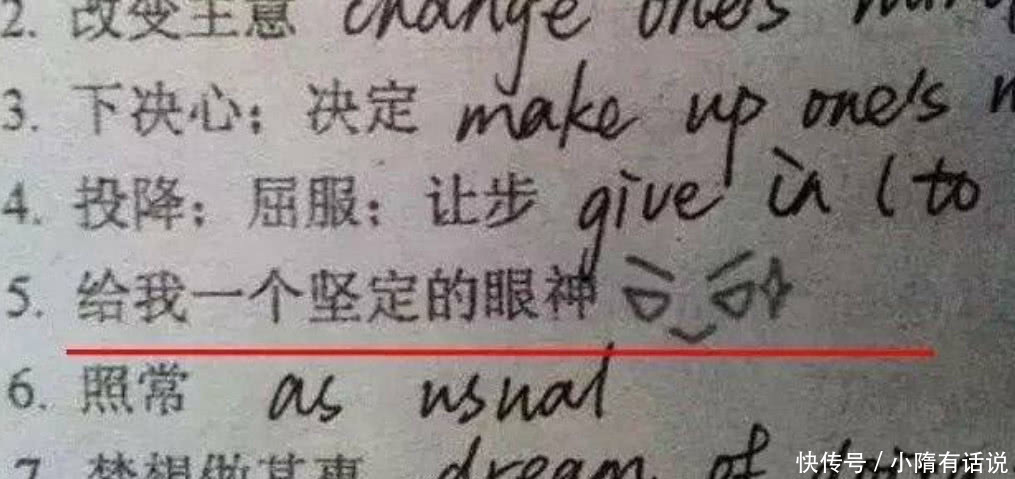 2. 改变主意 change one's
3. 下决心；决定 make up one's
4. 投降；屈服；让步 give in (to
5. 给我一个坚定的眼神
6. 照常 as usual
7. 梦想做某事 dream of doing
快传号 / 小隋有话说